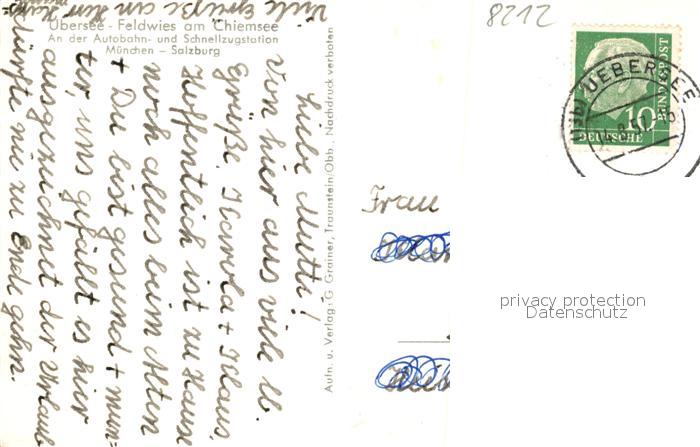 Viele Grüße an Herr
Übersee - Feldwies am Chiemsee
An der Autobahn- und Schnellzugstation
München - Salzburg
Liebe Mutti!
Von hier aus viele lb.
Grüße, Karola + Klaus.
Hoffentlich ist zu Hause
noch alles beim Alten
+ Du bist gesund + mun-
ter, uns gefällt es hier
ausgezeichnet der Urlaub
dürfte nie zu Ende gehn.
Aufn. u. Verlag: G. Grainer, Traunstein/Obb., Nachdruck verboten
8212
UEBERSEE
DEUTSCHE
BUNDESPOST
10
Frau
privacy protection
Datenschutz